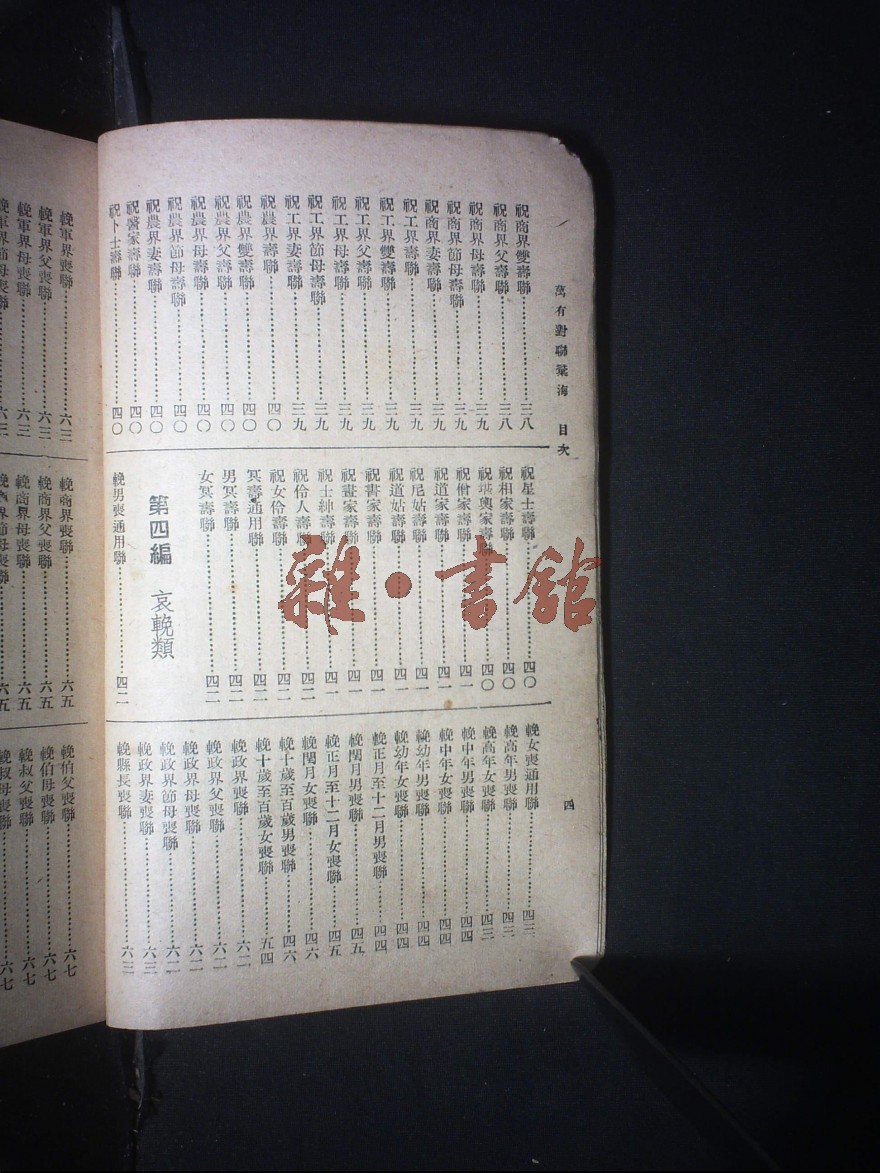 萬有對聯彙海 目次
四
祝商界雙壽聯………三八
祝商界父壽聯………三八
祝商界母壽聯………三九
祝商界節母壽聯………三九
祝商界妻壽聯………三九
祝工界壽聯………三九
祝工界雙壽聯………三九
祝工界父壽聯………三九
祝工界母壽聯………三九
祝工界節母壽聯………三九
祝工界妻壽聯………三九
祝農界壽聯………四〇
祝農界雙壽聯………四〇
祝農界父壽聯………四〇
祝農界母壽聯………四〇
祝農界節母壽聯………四〇
祝農界妻壽聯………四〇
祝醫家壽聯………四〇
祝卜士壽聯………四〇
祝星士壽聯………四〇
祝相家壽聯………四〇
祝堪輿家壽聯………四〇
祝僧家壽聯………四一
祝道家壽聯………四一
祝尼姑壽聯………四一
祝道姑壽聯………四一
祝書家壽聯………四一
祝畫家壽聯………四一
祝士紳壽聯………四一
祝伶人壽聯………四二
祝女伶壽聯………四二
冥壽通用聯………四二
男冥壽聯………四二
女冥壽聯………四二
第四編 哀輓類
輓男喪通用聯………四二
輓女喪通用聯………四三
輓高年男喪聯………四三
輓高年女喪聯………四三
輓中年男喪聯………四四
輓中年女喪聯………四四
輓幼年男喪聯………四四
輓幼年女喪聯………四四
輓正月至十二月男喪聯………四四
輓閏月男喪聯………四五
輓正月至十二月女喪聯………四五
輓閏月女喪聯………四六
輓十歲至百歲男喪聯………四六
輓十歲至百歲女喪聯………五四
輓政界喪聯………六二
輓政界父喪聯………六二
輓政界母喪聯………六二
輓政界節母喪聯………六二
輓政界妻喪聯………六三
輓縣長喪聯………六三
輓軍界喪聯………六三
輓軍界父喪聯………六三
輓軍界母喪聯………六三
輓商界喪聯………六五
輓商界父喪聯………六五
輓商界母喪聯………六五
輓伯父喪聯………六七
輓伯母喪聯………六七
輓叔父喪聯………六七
輓叔母喪聯………六七
雜·書館